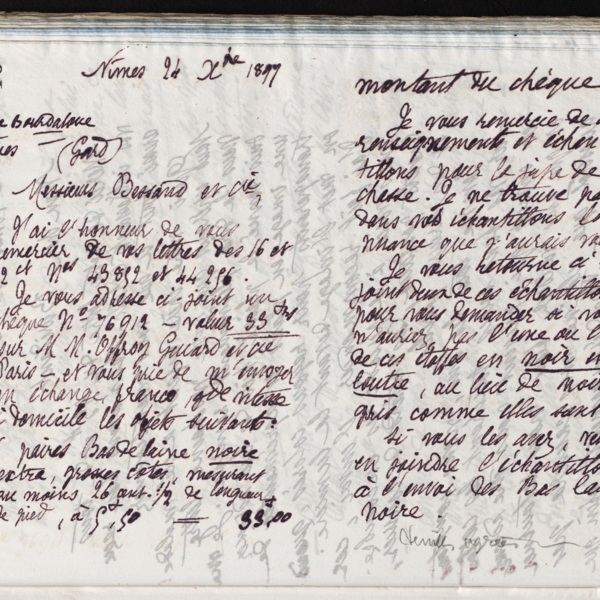 Nîmes 24 Xbre 1897
Bourdaloue
(Gard)
Messieurs Bessand et Cie,
J'ai l'honneur de vous
remercier de vos lettres des 16 et
22 et Nos 43852 et 44256.
Je vous adresse ci-joint un
chèque No 76912 - valeur 33 frs
sur M M. Offroy Guiard et Cie
Paris - et vous prie de m'envoyer
en échange, franco,
à domicile les objets suivants:
6 paires Bas de laine noire
extra, grosses côtes, mesurant
au moins 26 cent. 1/2 de longueur
de pied, à 5,50 = 33,00
montant du chèque
Je vous remercie de
renseignements et échan
tillons pour la jupe de
chesse. Je ne trouve pas
dans vos échantillons la
nuance que j'aurais
Je vous retourne ci
joint deux de ces échantillons
pour vous demander si vous
n'auriez pas l'une ou l'
de ces étoffes en noir
loutre, au lieu de noir
gris comme elles sont
Si vous les avez,
en joindre l'échantillon
à l'envoi des Bas laine
noire.